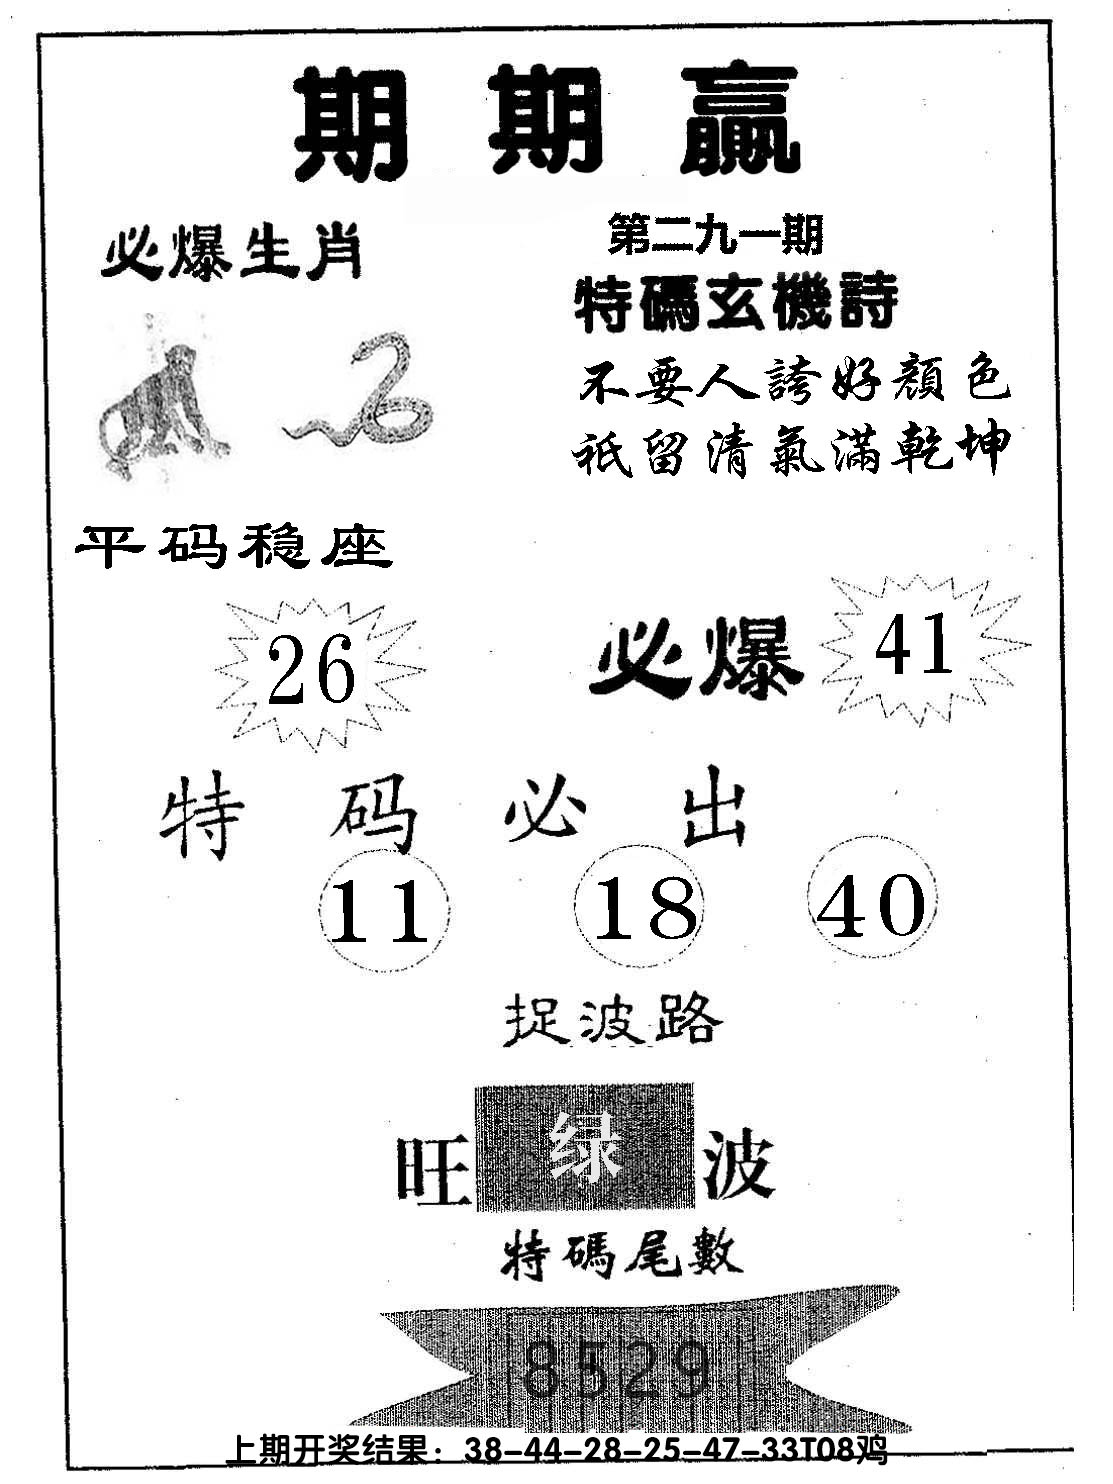 期期赢
必爆生肖
第二九一期
特碼玄機詩
不要人誇好顏色
祗留清氣滿乾坤
平码稳座
26
必爆 41
特码必出
11 18 40
捉波路
旺 绿 波
特碼尾數
8529
上期开奖结果：38-44-28-25-47-33T08鸡